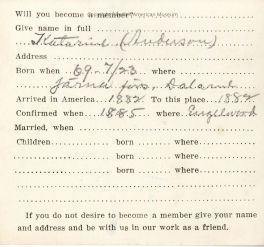 Will you become a member?
American Museum
Give name in full
Katarina (Anderson)
Address
Born when 69-7/23 where
Järnaförs. Dalarne
Arrived in America 1882 To this place 1882
Confirmed when 1885 where Englewood
Married, when
Children born where
born where
born where
If you do not desire to become a member give your name
and address and be with us in our work as a friend.